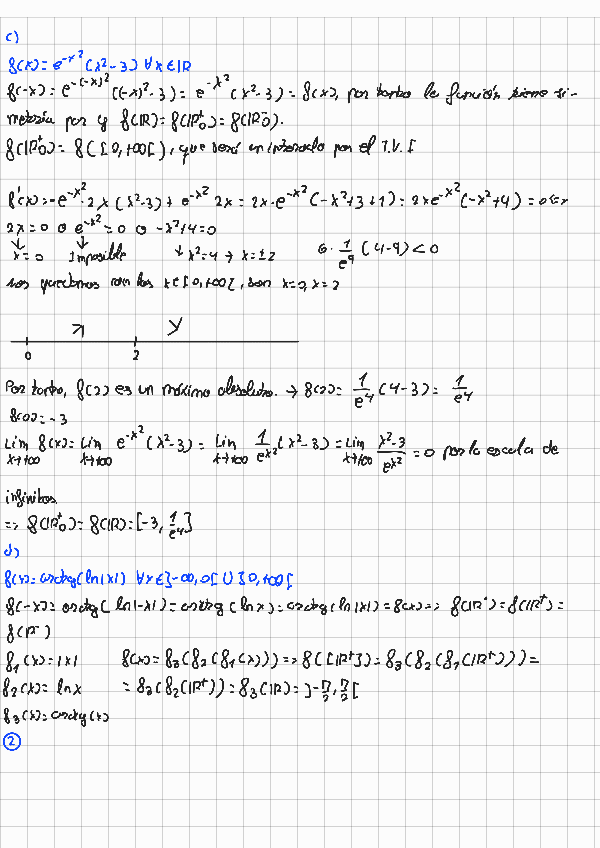 c)
f(x)= e^{-x^2} (x^2-3) ∀x∈ℝ
f(-x)= e^{-(-x)^2} ((-x)^2-3)= e^{-x^2} (x^2-3)= f(x), por tanto la función tiene si-
metría por y f(ℝ)= f(ℝ_0^+)= f(ℝ_0^-).
f(ℝ_0^+)= f([0,+∞[), que será un intervalo por el T.V.I
f'(x)=-e^{-x^2}·2x (x^2-3)+ e^{-x^2} 2x= 2x·e^{-x^2} (-x^2+3+1)= 2xe^{-x^2}(-x^2+4)=0⇔
2x=0 o e^{-x^2}=0 o -x^2+4=0
↓ ↓
x=0 Imposible ↓ x^2=4 → x=±2 6·\frac{1}{e^9} (4-9)<0
nos quedamos con los x∈[0,+∞[, son x=0, x=2
↗ ↘
0 2
Por tanto, f(2) es un máximo absoluto. → f(2)= \frac{1}{e^4} (4-3)= \frac{1}{e^4}
f(0)=-3
Lim_{x→+∞} f(x)= Lim_{x→+∞} e^{-x^2} (x^2-3)= Lim_{x→+∞} \frac{1}{e^{x^2}} (x^2-3)= Lim_{x→+∞} \frac{x^2-3}{e^{x^2}} =0 por la escala de
infinitos
=> f(ℝ_0^+)= f(ℝ)=[-3, \frac{1}{e^4}]
d)
f(x)= arctg(ln|x|) ∀x∈]-∞,0[∪]0,+∞[
f(-x)= arctg( ln|-x|)= arctg (ln x)= arctg(ln|x|)= f(x)=> f(ℝ^*)=f(ℝ^+)=
f(ℝ^-)
f_1(x)=|x| f(x)= f_3(f_2(f_1(x)))=> f([ℝ^+])= f_3(f_2(f_1(ℝ^+)))=
f_2(x)= ln x = f_3(f_2(ℝ^+))= f_3(ℝ)= ]-\frac{π}{2}, \frac{π}{2}[
f_3(x)= arctg(x)
②